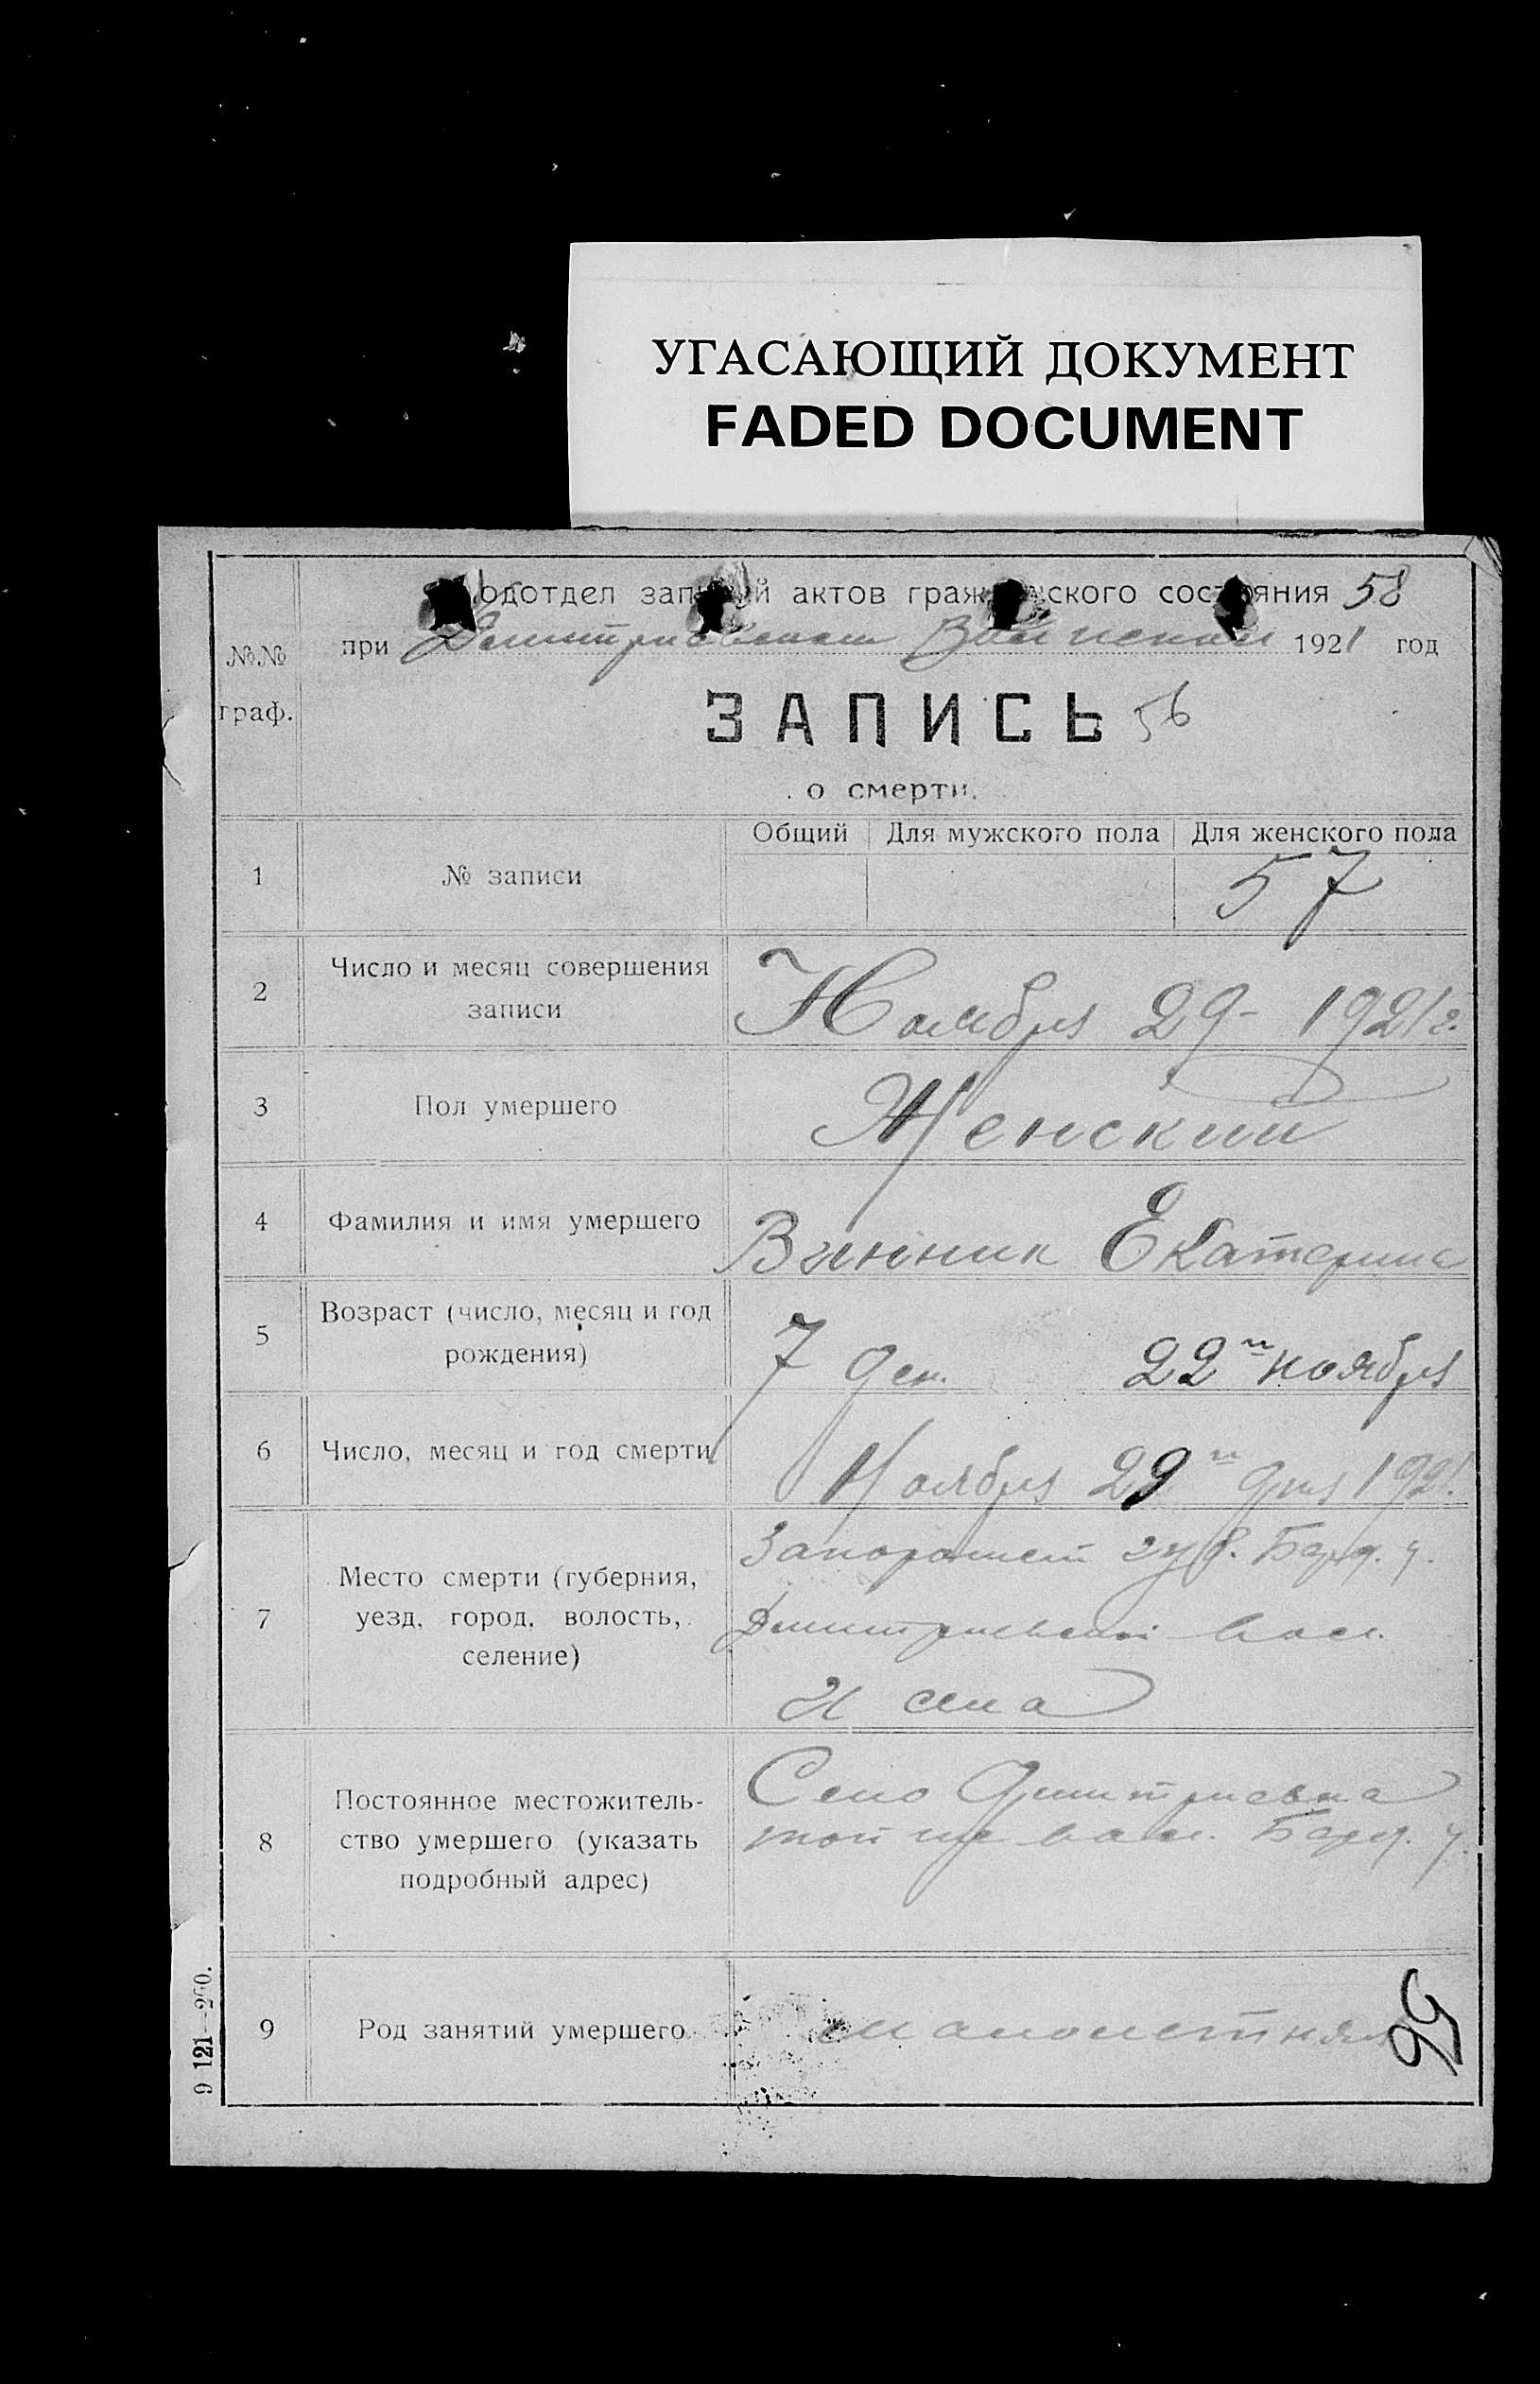 УГАСАЮЩИЙ ДОКУМЕНТ
FADED DOCUMENT
Подотдел записей актов гражданского состояния 58
при Дмитриевском Волисполкоме 1921 год
№№
граф.
ЗАПИСЬ 56
о смерти.
Общий Для мужского пола Для женского пола
1 № записи 57
2 Число и месяц совершения
записи
Ноября 29 - 1921 г.
3 Пол умершего Женский
4 Фамилия и имя умершего Винник Екатерина
5 Возраст (число, месяц и год
рождения)
7 ден. 22го ноября
6 Число, месяц и год смерти Ноября 29го дня 1921
7 Место смерти (губерния,
уезд, город, волость,
селение)
Запорожской губ. Берд. у.
Дмитриевской вол.
и села
8 Постоянное местожитель-
ство умершего (указать
подробный адрес)
Село Дмитриевка
той же вол. Берд. у.
9 Род занятий умершего малолетняя
56
9 121—200.